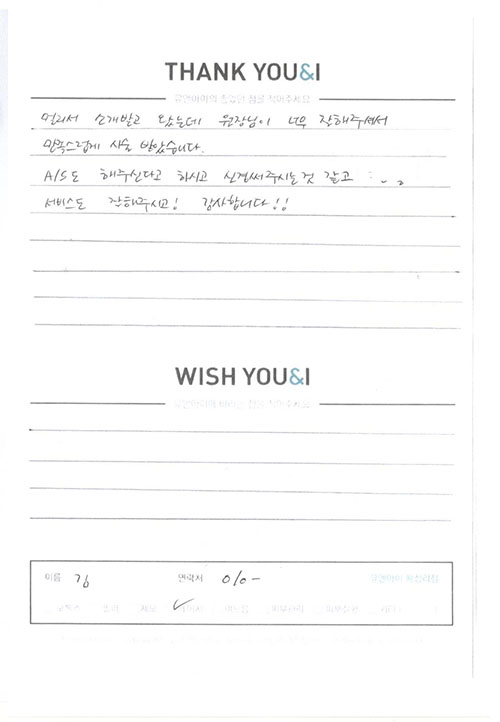 THANK YOU&I
유앤아이의 좋았던 점을 적어주세요
멀리서 소개받고 왔는데 원장님이 너무 잘해주셔서
만족스럽게 시술 받았습니다.
A/S도 해주신다고 하시고 신경써주시는것 같고
서비스도 잘해주시고! 감사합니다!!
WISH YOU&I
유앤아이에 바라는 점을 적어주세요
이름 김 연락처 010-
보톡스 필러 제모 여드름 피부관리 기타 ( )